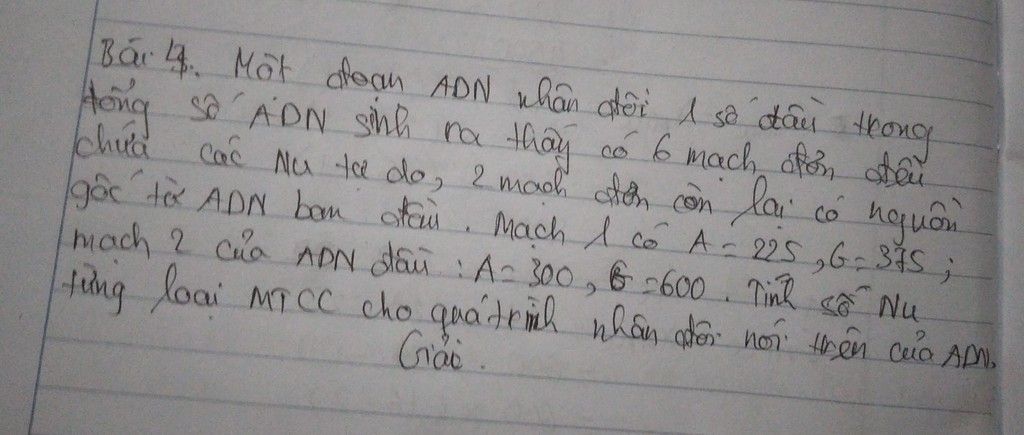 Bài 4. Một đoạn ADN nhân đôi 1 số đầu trong
tổng số ADN sinh ra thấy có 6 mạch đơn đều
chứa các Nu tự do, 2 mạch đơn còn lại có nguồn
gốc từ ADN ban đầu. Mạch 1 có A = 225, G = 375;
mạch 2 của ADN đầu : A = 300, G = 600. Tính số Nu
từng loại MTCC cho quá trình nhân đôi nói trên của ADN.
Giải.